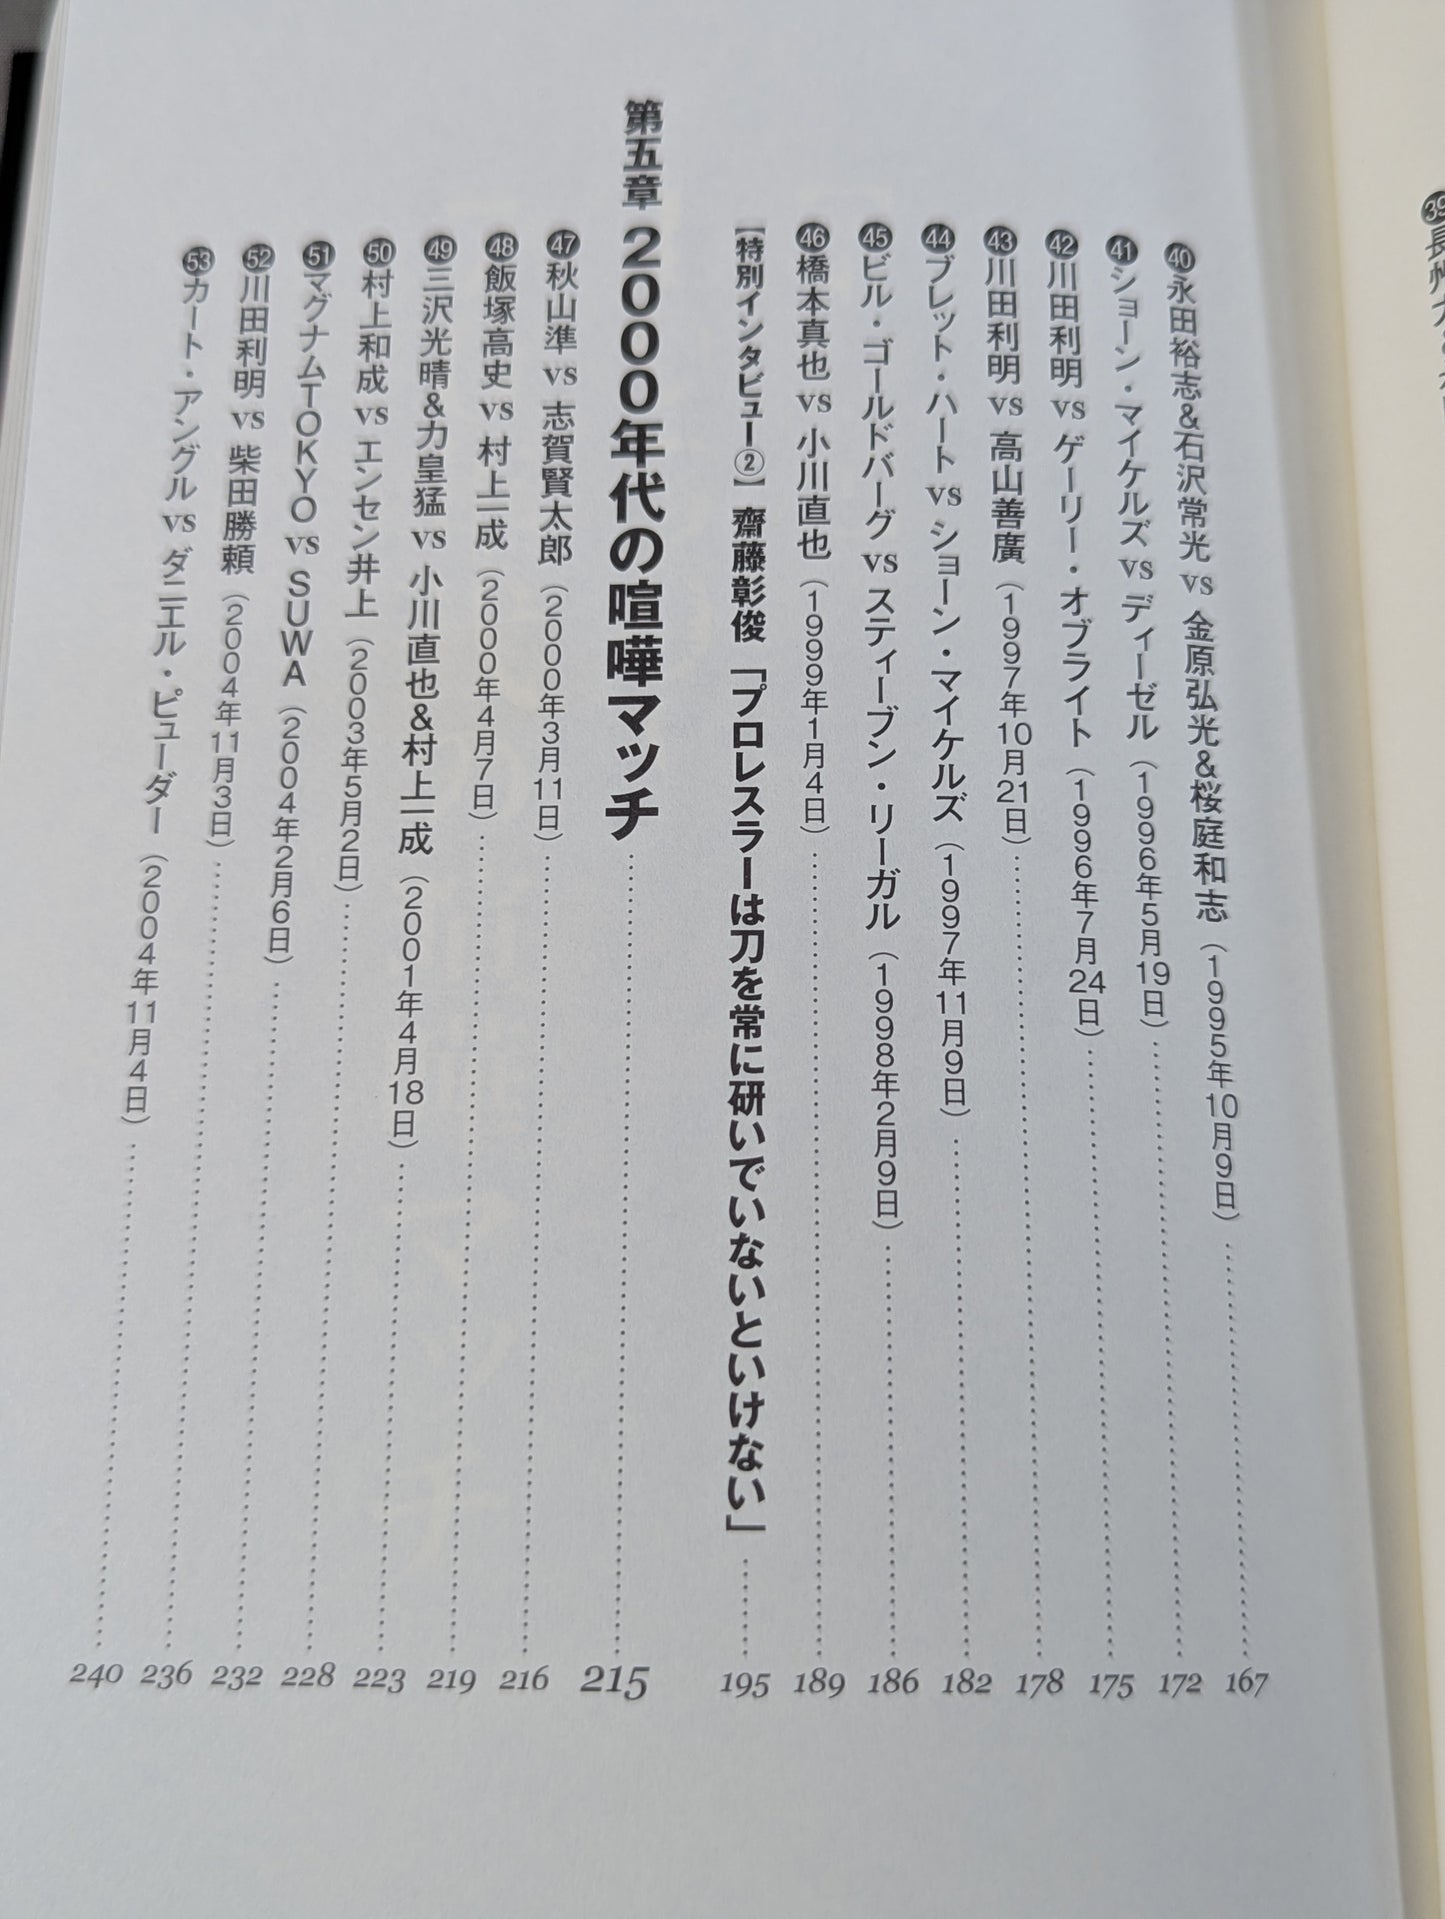 ㊵永田裕志&石沢常光 vs 金原弘光&桜庭和志(1995年10月9日)…… 167
㊶ショーン・マイケルズ vs ディーゼル(1996年5月19日)…… 172
㊷川田利明 vs ゲーリー・オブライト(1996年7月24日)…… 175
㊸川田利明 vs 高山善廣(1997年10月21日)…… 178
㊹ブレット・ハート vs ショーン・マイケルズ(1997年11月9日)…… 182
㊺ビル・ゴールドバーグ vs スティーブン・リーガル(1998年2月9日)…… 186
㊻橋本真也 vs 小川直也(1999年1月4日)…… 189
【特別インタビュー②】齋藤彰俊「プロレスラーは刀を常に研いでいないといけない」…… 195
第五章 2000年代の喧嘩マッチ…… 215
㊼秋山準 vs 志賀賢太郎(2000年3月11日)…… 216
㊽飯塚高史 vs 村上一成(2000年4月7日)…… 219
㊾三沢光晴&力皇猛 vs 小川直也&村上一成(2001年4月18日)…… 223
㊿村上和成 vs エンセン井上(2003年5月2日)…… 228
51マグナムTOKYO vs SUWA(2004年2月6日)…… 232
52川田利明 vs 柴田勝頼(2004年11月3日)…… 236
53カート・アングル vs ダニエル・ピューダー(2004年11月4日)…… 240